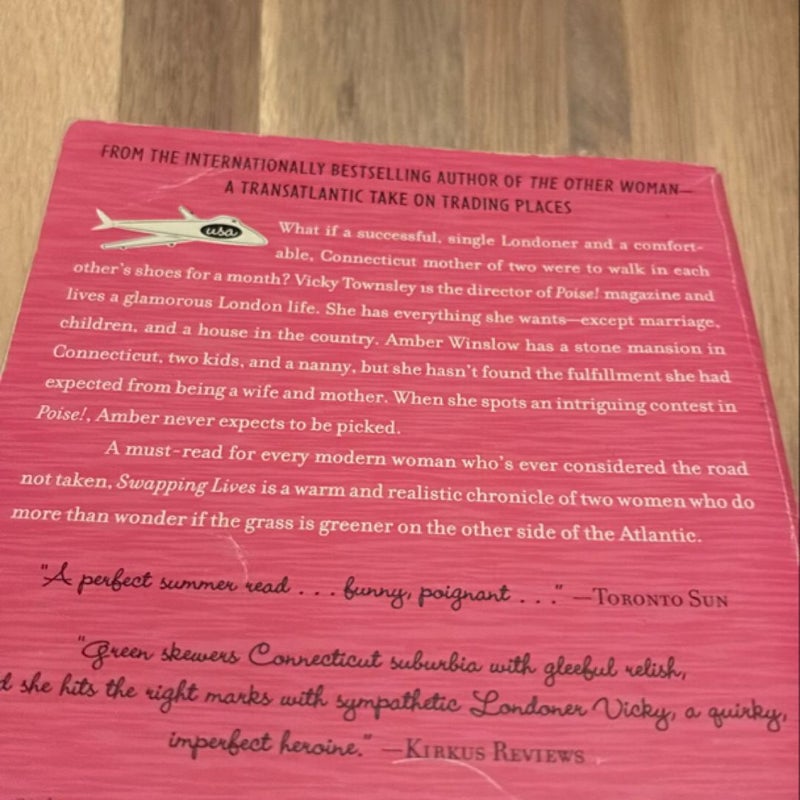 FROM THE INTERNATIONALLY BESTSELLING AUTHOR OF THE OTHER WOMAN—
A TRANSATLANTIC TAKE ON TRADING PLACES
usa
What if a successful, single Londoner and a comfort-
able, Connecticut mother of two were to walk in each
other's shoes for a month? Vicky Townsley is the director of Poise! magazine and
lives a glamorous London life. She has everything she wants—except marriage,
children, and a house in the country. Amber Winslow has a stone mansion in
Connecticut, two kids, and a nanny, but she hasn't found the fulfillment she had
expected from being a wife and mother. When she spots an intriguing contest in
Poise!, Amber never expects to be picked.
A must-read for every modern woman who's ever considered the road
not taken, Swapping Lives is a warm and realistic chronicle of two women who do
more than wonder if the grass is greener on the other side of the Atlantic.
"A perfect summer read . . . funny, poignant . . ." —TORONTO SUN
"Green skewers Connecticut suburbia with gleeful relish,
she hits the right marks with sympathetic Londoner Vicky, a quirky,
imperfect heroine." —KIRKUS REVIEWS